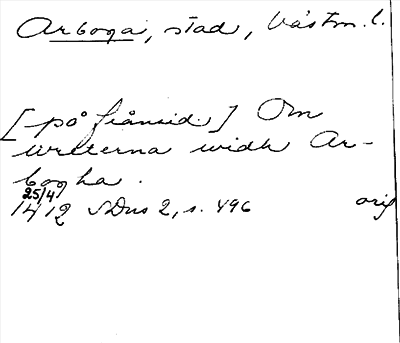 Arboga, stad, Västm. l.
[på frånsid.] Om
urterna widh Ar-
bogha.
25/4
1412 SDns 2, s. 496 orig